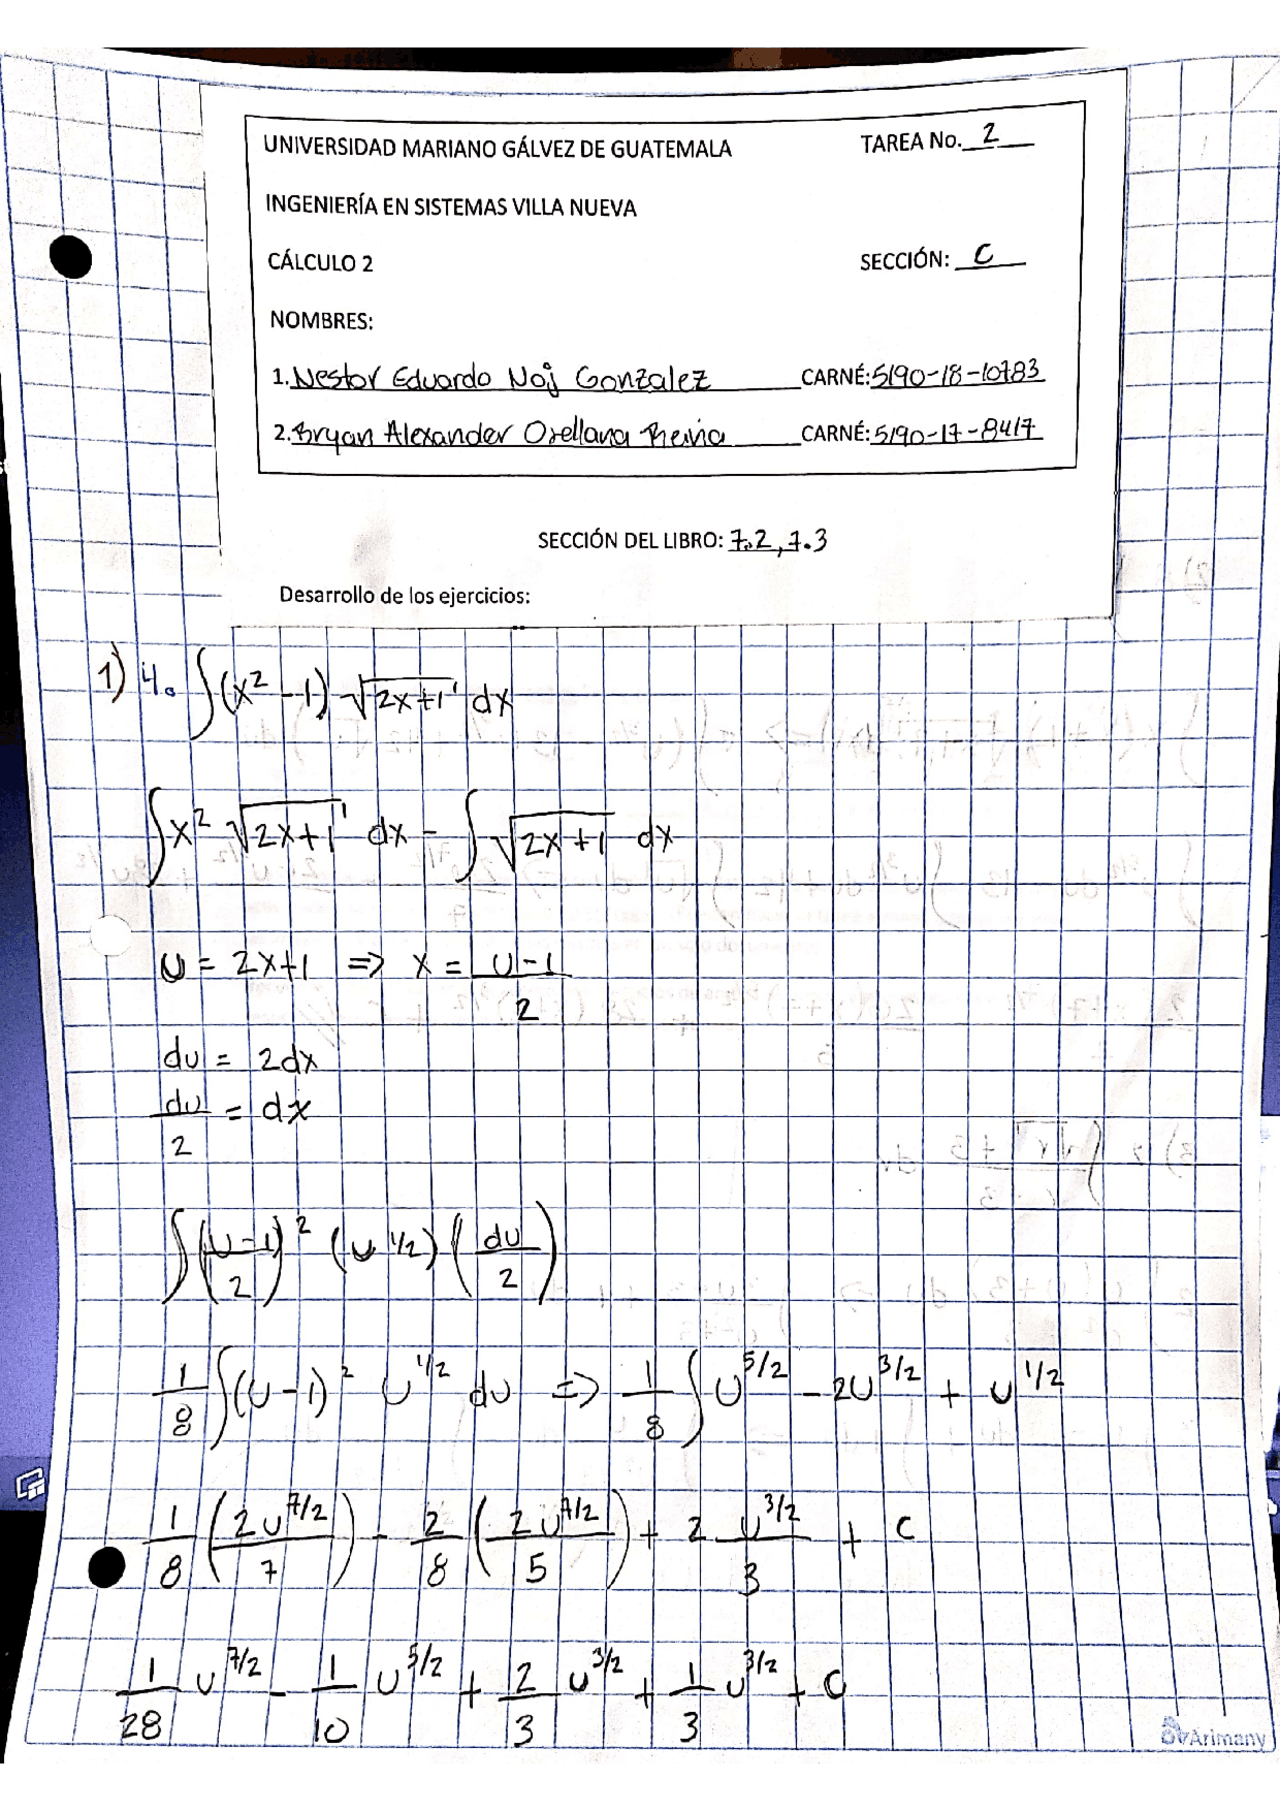 UNIVERSIDAD MARIANO GÁLVEZ DE GUATEMALA TAREA No. 2
INGENIERÍA EN SISTEMAS VILLA NUEVA
CÁLCULO 2 SECCIÓN: C
NOMBRES:
1. Nestor Eduardo Noj Gonzalez CARNÉ: 5190-18-10783
2. Bryan Alexander Orellana Reina CARNÉ: 5190-17-8417
SECCIÓN DEL LIBRO: 7.2, 7.3
Desarrollo de los ejercicios:
1) 4. ∫(x² - 1) √(2x+1) dx
∫x² √(2x+1) dx - ∫ √(2x+1) dx
u = 2x+1 => x = (u-1)/2
du = 2dx
du/2 = dx
∫((u-1)/2)² (u^1/2) (du/2)
1/8 ∫(u-1)² u^1/2 du => 1/8 ∫ u^5/2 - 2u^3/2 + u^1/2
1/8 (2u^7/2 / 7) - 2/8 (2u^7/2 / 5) + 2 u^3/2 / 3 + c
1/28 u^7/2 - 1/10 u^5/2 + 2/3 u^3/2 + 1/3 u^3/2 + C
Arimany